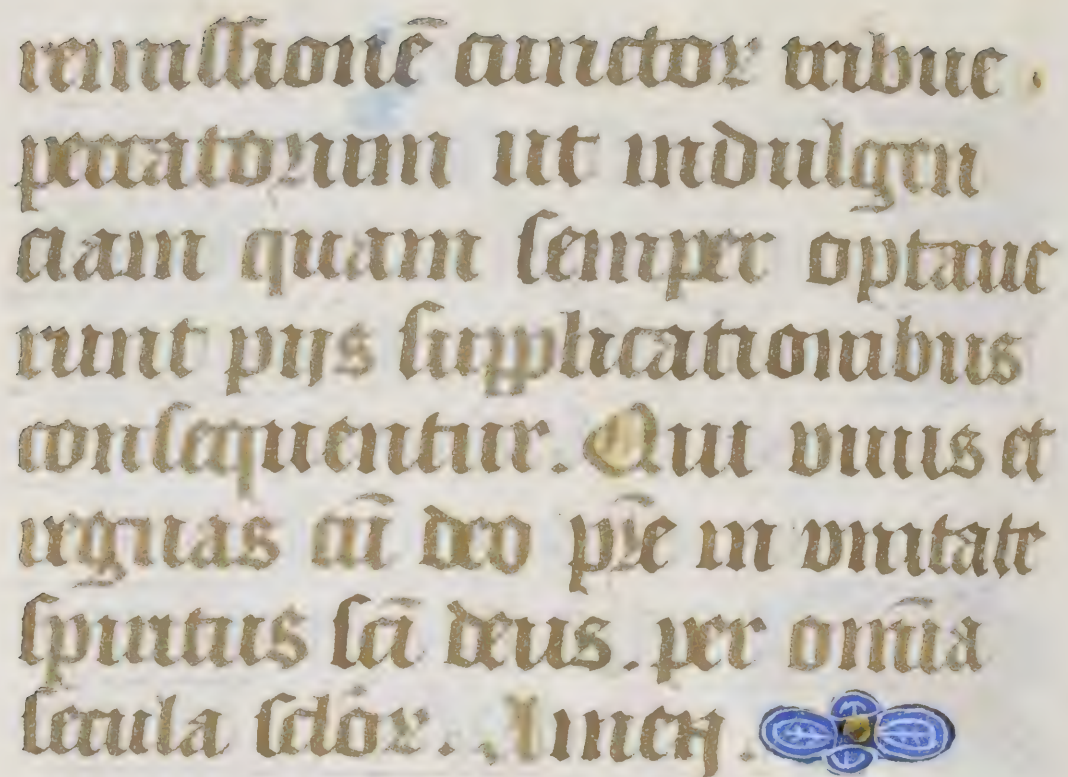 remissionē cunctoꝝ tribue .
peccatorum ut indulgen
ciam quam semper optaue
runt pijs supplicationibus
consequentur. Qui viuis et
regnas cū deo pr̄e in vnitate
spiritus sc̄i deus. per om̄ia
secula sc̄loꝝ.. Amen.